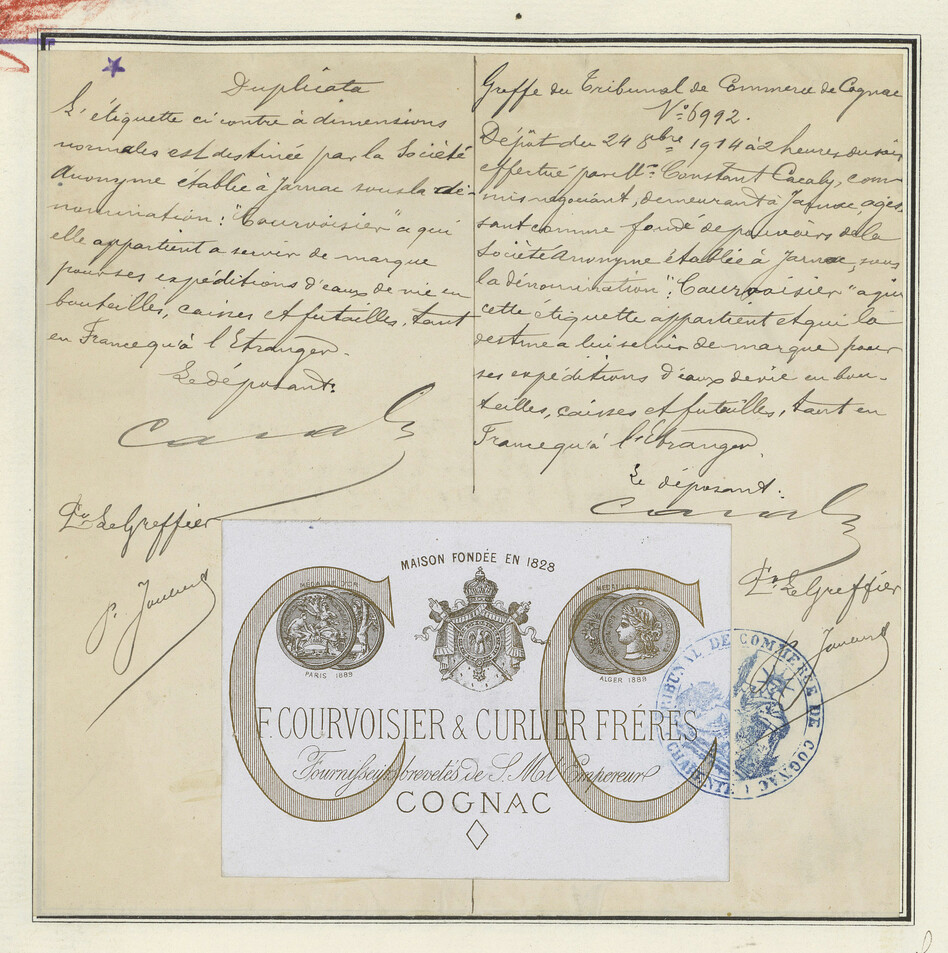 Duplicata
L'étiquette ci contre à dimensions
normales est destinée par la Société
Anonyme établie à Jarnac sous la dé-
nomination: "Courvoisier" a qui
elle appartient a servir de marque
pour ses expéditions d'eaux de vie en
bouteilles, caisses et futailles, tant
en France qu'à l'Etranger.
Le déposant:
Pr. Le Greffier
Greffe du Tribunal de Commerce de Cognac
No. 6992.
Dépôt du 24 8bre 1914 à 2 heures du soir
effectué par Mr. Constant Cacaly, com-
mis négociant, demeurant à Jarnac, agis-
sant comme fondé de pouvoirs de la
Société Anonyme établie à Jarnac, sous
la dénomination: "Courvoisier" a qui
cette étiquette appartient et qui la
destine a lui servir de marque pour
ses expéditions d'eaux de vie en bou-
teilles, caisses et futailles, tant en
France qu'à l'Etranger.
Le déposant:
Pr. Le Greffier
MAISON FONDÉE EN 1828
MEDAILLE D'OR
MEDAILLE D'OR
PARIS 1889
ALGER 1888
C C
F. COURVOISIER & CURLIER FRÉRES
Fournisseurs brevetés de S. M. l'Empereur
COGNAC
TRIBUNAL DE COMMERCE DE COGNAC